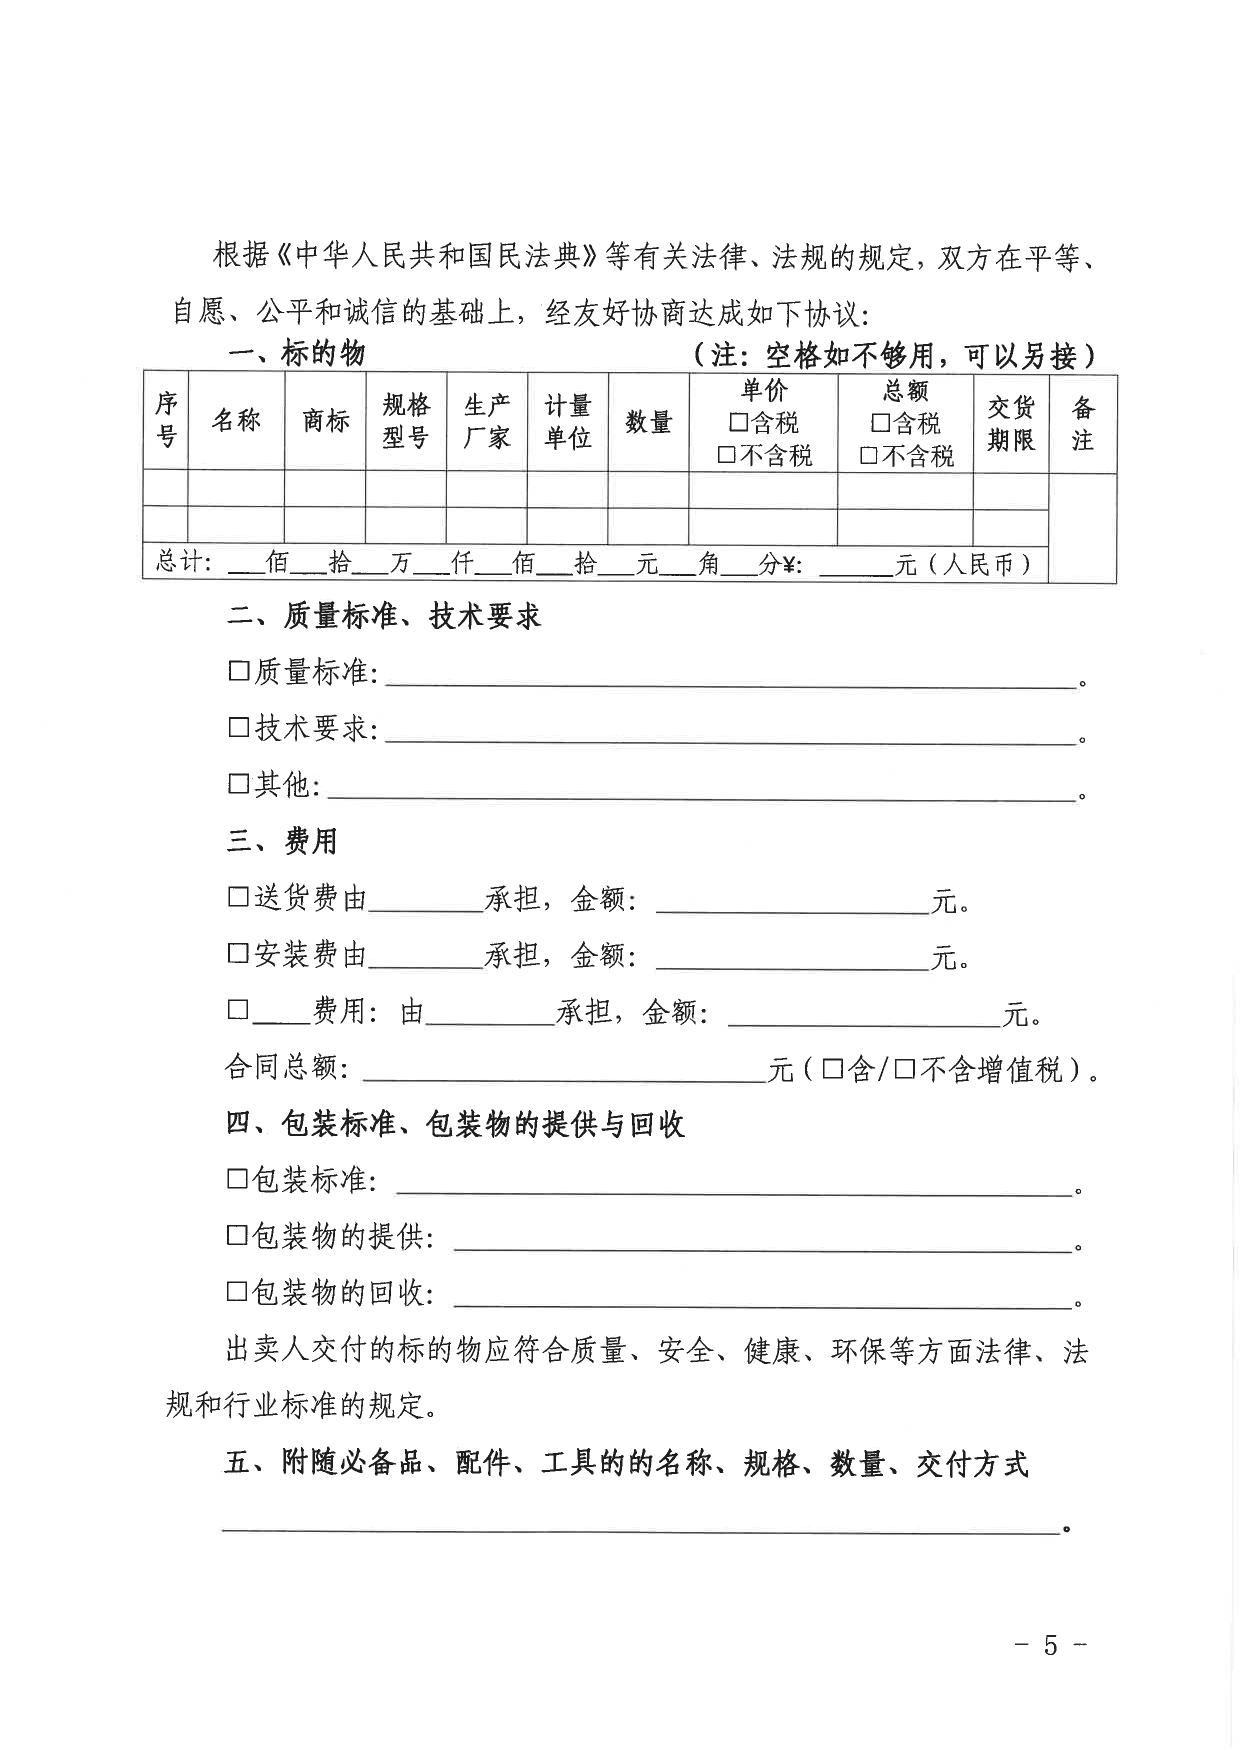 根据《中华人民共和国民法典》等有关法律、法规的规定，双方在平等、
自愿、公平和诚信的基础上，经友好协商达成如下协议：
一、标的物 （注：空格如不够用，可以另接）
序号 名称 商标 规格型号 生产厂家 计量单位 数量 单价 □含税 □不含税 总额 □含税 □不含税 交货期限 备注
总计：___佰___拾___万___仟___佰___拾___元___角___分¥：______元（人民币）
二、质量标准、技术要求
□质量标准：______。
□技术要求：______。
□其他：______。
三、费用
□送货费由______承担，金额：______元。
□安装费由______承担，金额：______元。
□____费用：由______承担，金额：______元。
合同总额：______元（□含/□不含增值税）。
四、包装标准、包装物的提供与回收
□包装标准：______。
□包装物的提供：______。
□包装物的回收：______。
出卖人交付的标的物应符合质量、安全、健康、环保等方面法律、法
规和行业标准的规定。
五、附随必备品、配件、工具的的名称、规格、数量、交付方式
______。
- 5 -